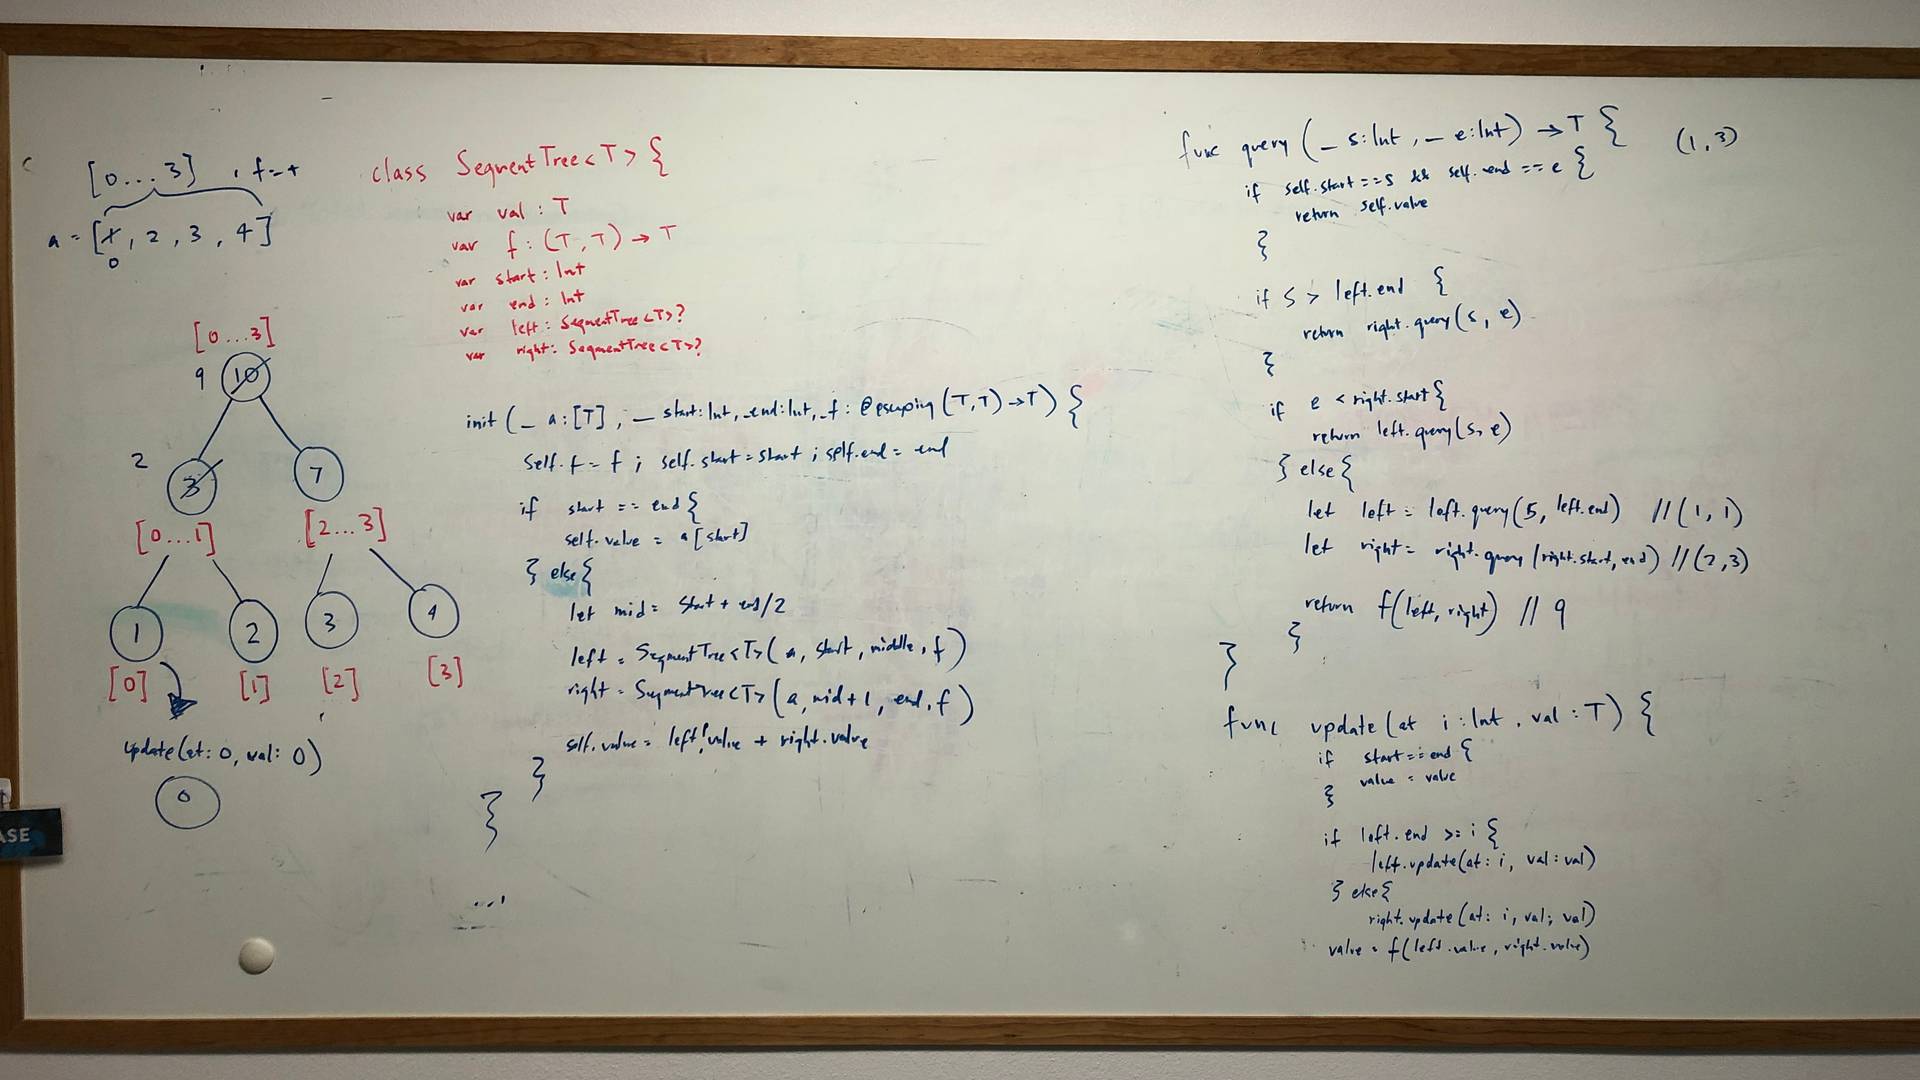 [0...3] , f=+
a = [1, 2, 3, 4]
0
[0...3]
9 10
2 3 7
[0...1] [2...3]
1 2 3 4
[0] [1] [2] [3]
update(at: 0, val: 0)
0
ASE
class SegmentTree<T> {
var val : T
var f : (T, T) → T
var start : Int
var end : Int
var left : SegmentTree<T>?
var right : SegmentTree<T>?
init (_ a:[T], _ start:Int, _end:Int, _f : @escaping (T,T) → T) {
self.f = f ; self.start = start ; self.end = end
if start == end {
self.value = a[start]
} else {
let mid = start + end/2
left = SegmentTree<T>(a, start, middle, f)
right = SegmentTree<T>(a, mid+1, end, f)
self.value = left!value + right.value
}
}
...
func query (_ s:Int, _ e:Int) → T { (1,3)
if self.start==s && self.end == e {
return self.value
}
if s > left.end {
return right.query(s, e)
}
if e < right.start {
return left.query(s, e)
} else {
let left = left.query(s, left.end) //(1, 1)
let right = right.query(right.start, end) //(2,3)
return f(left, right) // 9
}
}
func update (at i : Int, val : T) {
if start == end {
value = value
}
if left.end >= i {
left.update(at: i, val: val)
} else {
right.update(at: i, val: val)
value = f(left.value, right.value)